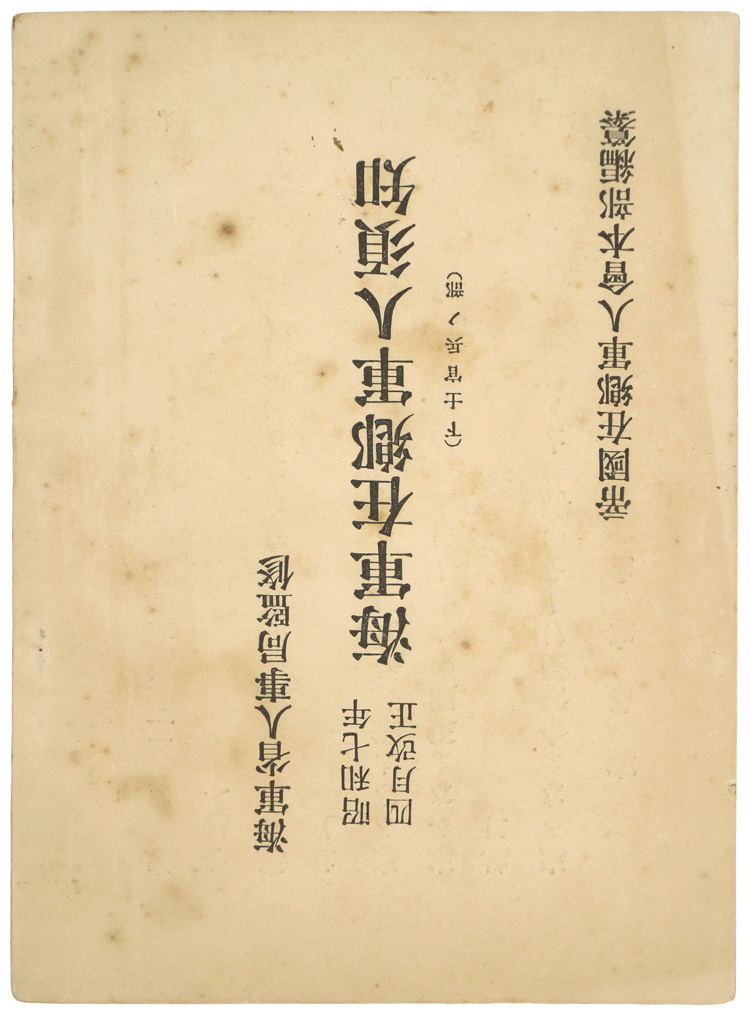 海軍省人事局監修
昭和七年
四月改正
海軍在鄕軍人須知
（下士官兵ノ部）
帝國在鄕軍人會本部編纂